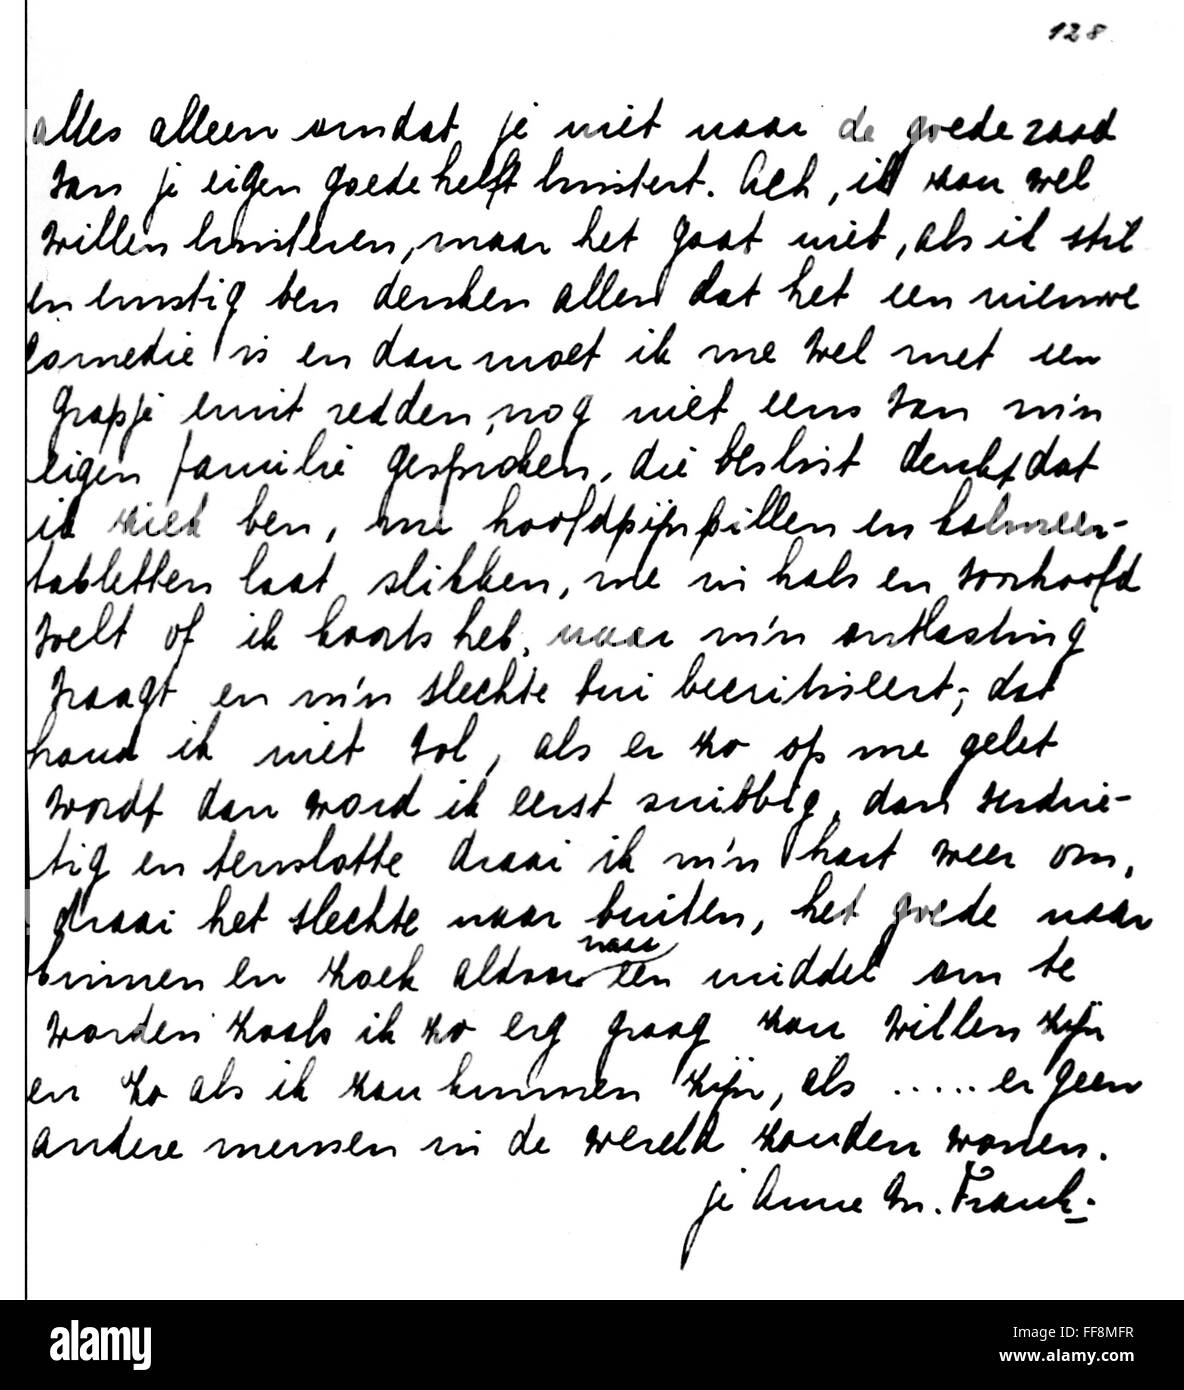 128
alles alleen omdat je niet naar de goede raad
van je eigen goede helft luistert. Ach, ik zou wel
willen luisteren, maar het gaat niet, als ik stil
en ernstig ben denken allen dat het een nieuwe
comedie is en dan moet ik me wel met een
grapje eruit redden, nog niet eens van m'n
eigen familie gesproken, die beslist denkt dat
ik ziek ben, me hoofdpijnpillen en kalmeer-
tabletten laat slikken, me in hals en voorhoofd
voelt of ik koorts heb, naar m'n ontlasting
vraagt en m'n slechte bui becritiseert, dat
houd ik niet vol, als er zo op me gelet
wordt dan word ik eerst snibbig, dan verdrie-
tig en tenslotte draai ik m'n hart weer om,
draai het slechte naar buiten, het goede naar
binnen en zoek aldoor naar een middel om te
worden zoals ik zo erg graag zou willen zijn
en zo als ik zou kunnen zijn, als ..... er geen
andere mensen in de wereld zouden wonen.
je Anne M. Frank.
alamy
Image ID: FF8MFR
www.alamy.com